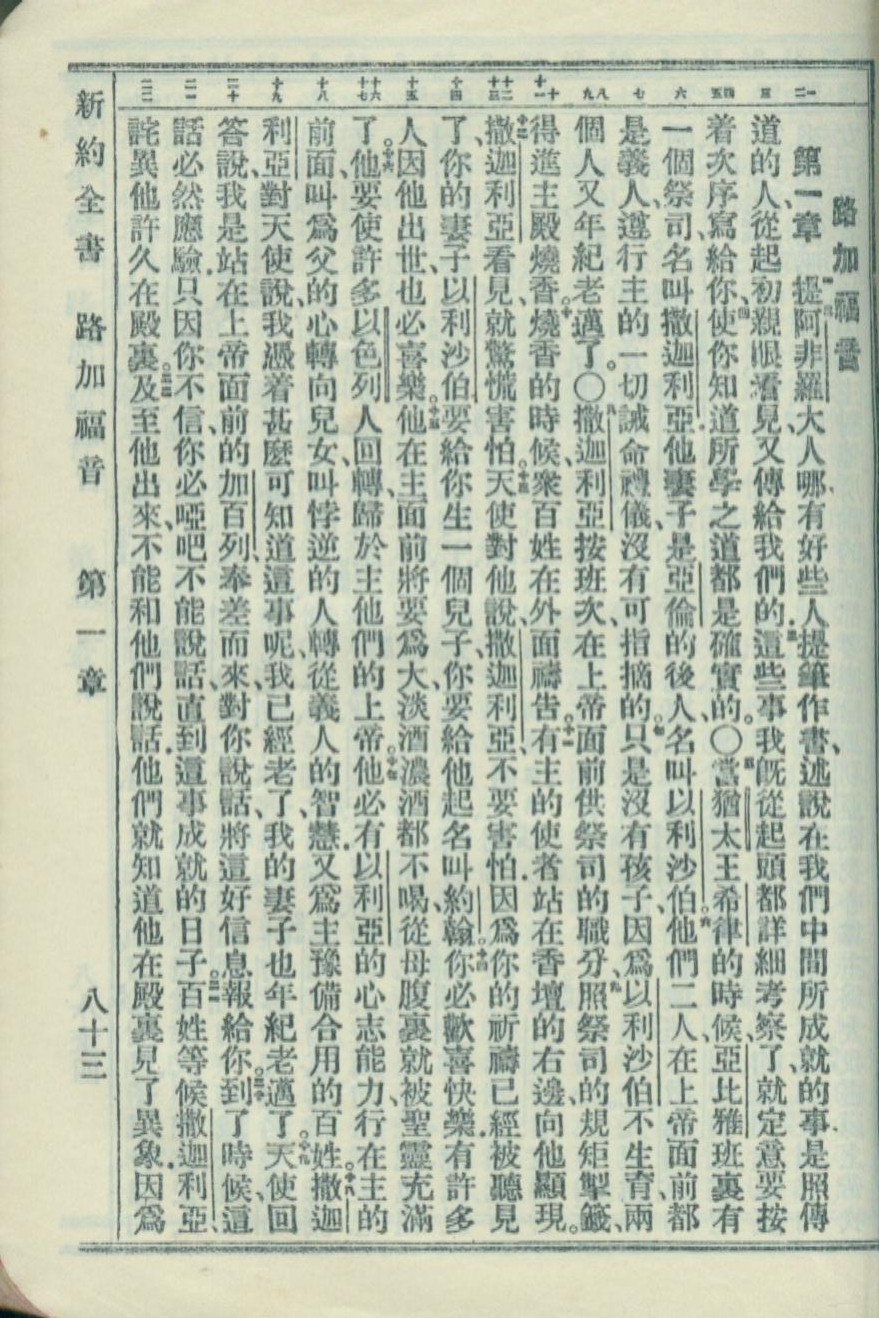 路加福音
第一章 提阿非羅大人哪、有好些人提筆作書、述說在我們中間所成就的事、是照傳
道的人從起初親眼看見、又傳給我們的、這些事我旣從起頭都詳細考察了、就定意要按
着次序寫給你、使你知道所學之道都是確實的。〇當猶太王希律的時候、亞比雅班裏有
一個祭司、名叫撒迦利亞、他妻子是亞倫的後人、名叫以利沙伯。他們二人在上帝面前都
是義人、遵行主的一切誡命禮儀、沒有可指摘的。只是沒有孩子、因爲以利沙伯不生育、兩
個人又年紀老邁了。〇撒迦利亞按班次、在上帝面前供祭司的職分、照祭司的規矩掣籤、
得進主殿燒香。燒香的時候、衆百姓在外面禱告。有主的使者站在香壇的右邊、向他顯現。
撒迦利亞看見、就驚慌害怕。天使對他說、撒迦利亞、不要害怕、因爲你的祈禱已經被聽見
了、你的妻子以利沙伯要給你生一個兒子、你要給他起名叫約翰。你必歡喜快樂、有許多
人因他出世、也必喜樂。他在主面前將要爲大、淡酒濃酒都不喝、從母腹裏就被聖靈充滿
了。他要使許多以色列人回轉、歸於主他們的上帝。他必有以利亞的心志能力、行在主的
前面、叫爲父的心轉向兒女、叫悖逆的人轉從義人的智慧、又爲主豫備合用的百姓。撒迦
利亞對天使說、我憑着甚麼可知道這事呢、我已經老了、我的妻子也年紀老邁了。天使回
答說、我是站在上帝面前的加百列、奉差而來、對你說話、將這好信息報給你。到了時候、這
話必然應驗、只因你不信、你必啞吧不能說話、直到這事成就的日子。百姓等候撒迦利亞、
詫異他許久在殿裏。及至他出來、不能和他們說話、他們就知道他在殿裏見了異象、因爲
新約全書 路加福音 第一章 八十三